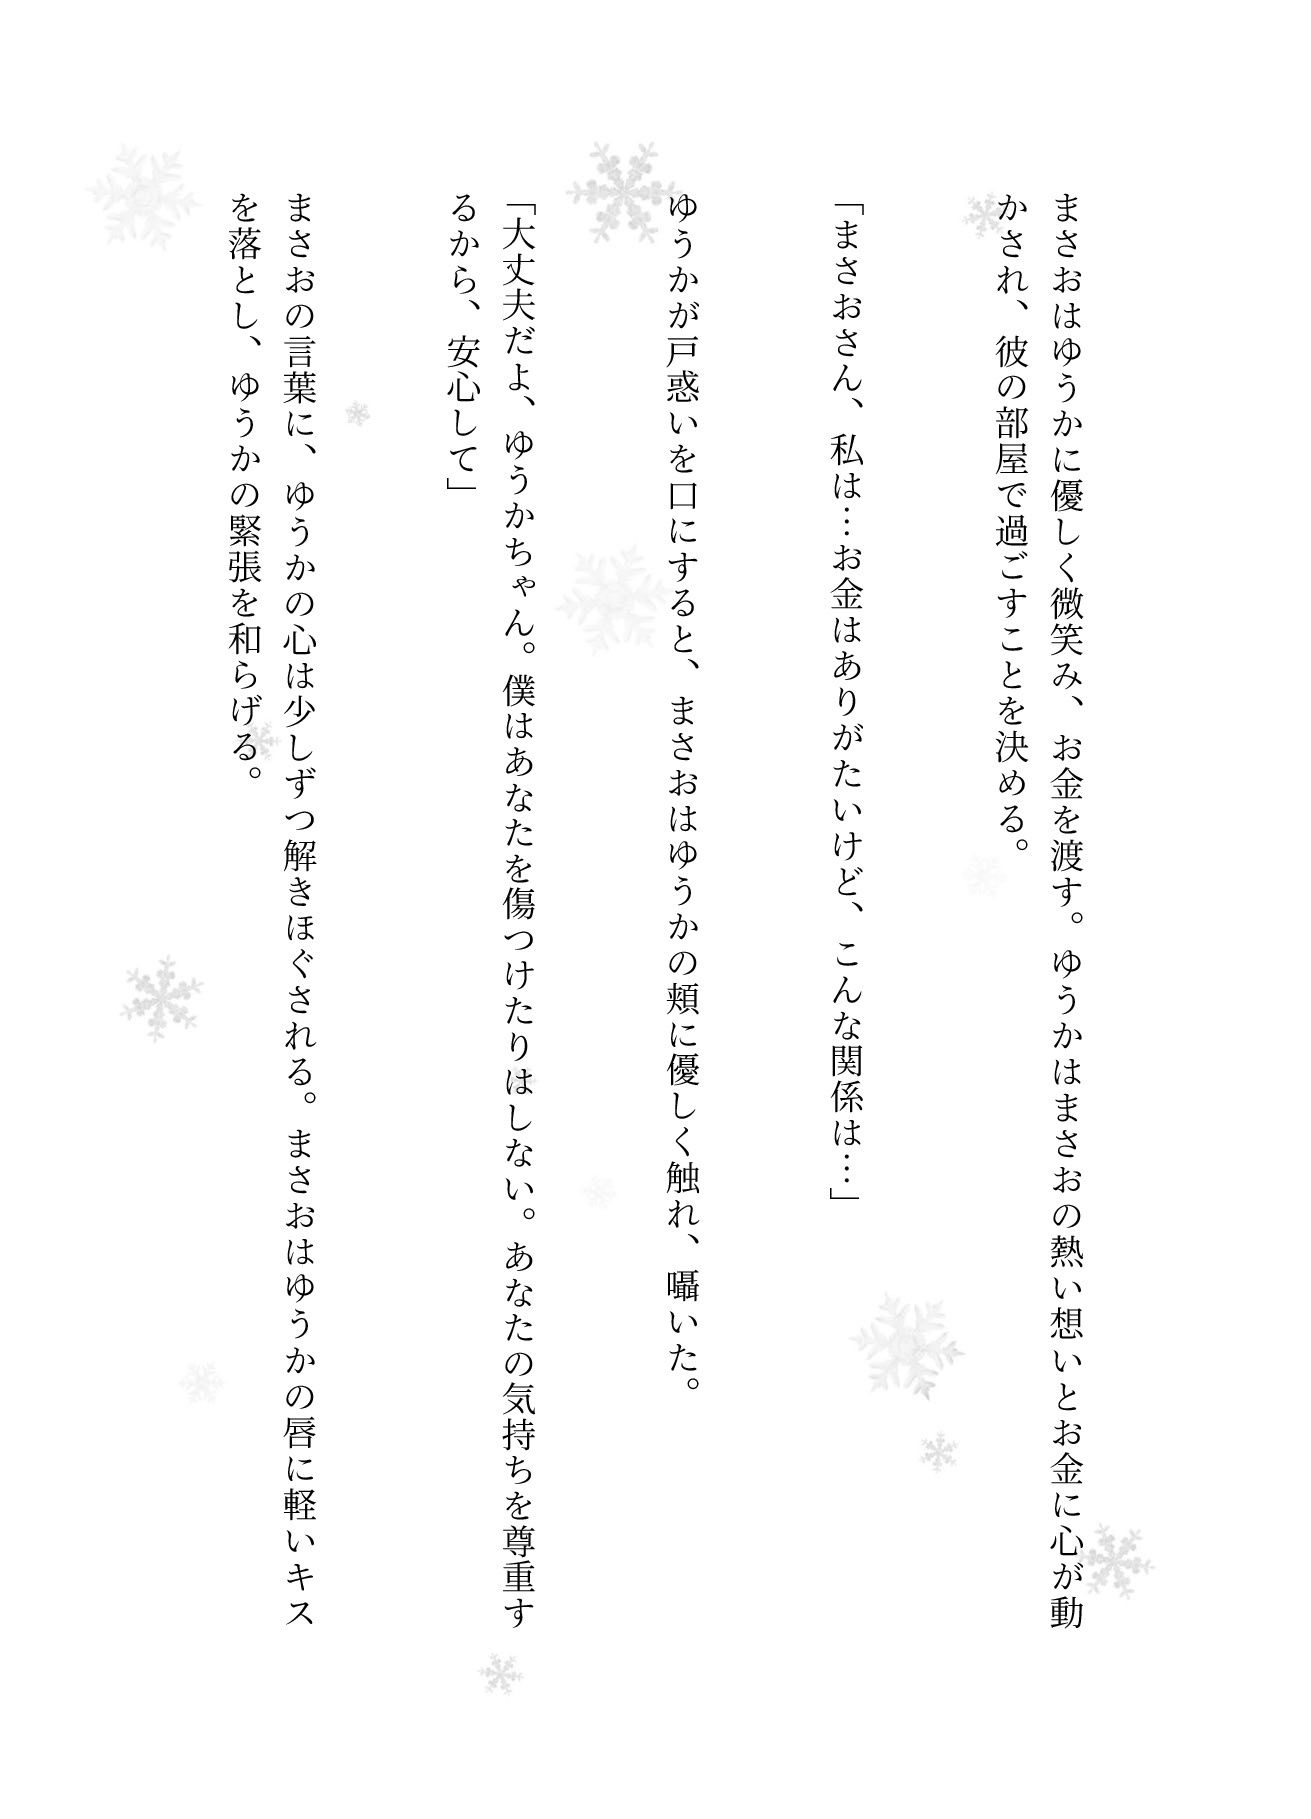 まさおはゆうかに優しく微笑み、お金を渡す。ゆうかはまさおの熱い想いとお金に心が動
かされ、彼の部屋で過ごすことを決める。
「まさおさん、私は…お金はありがたいけど、こんな関係は…」
ゆうかが戸惑いを口にすると、まさおはゆうかの頬に優しく触れ、囁いた。
「大丈夫だよ、ゆうかちゃん。僕はあなたを傷つけたりはしない。あなたの気持ちを尊重す
るから、安心して」
まさおの言葉に、ゆうかの心は少しずつ解きほぐされる。まさおはゆうかの唇に軽いキス
を落とし、ゆうかの緊張を和らげる。